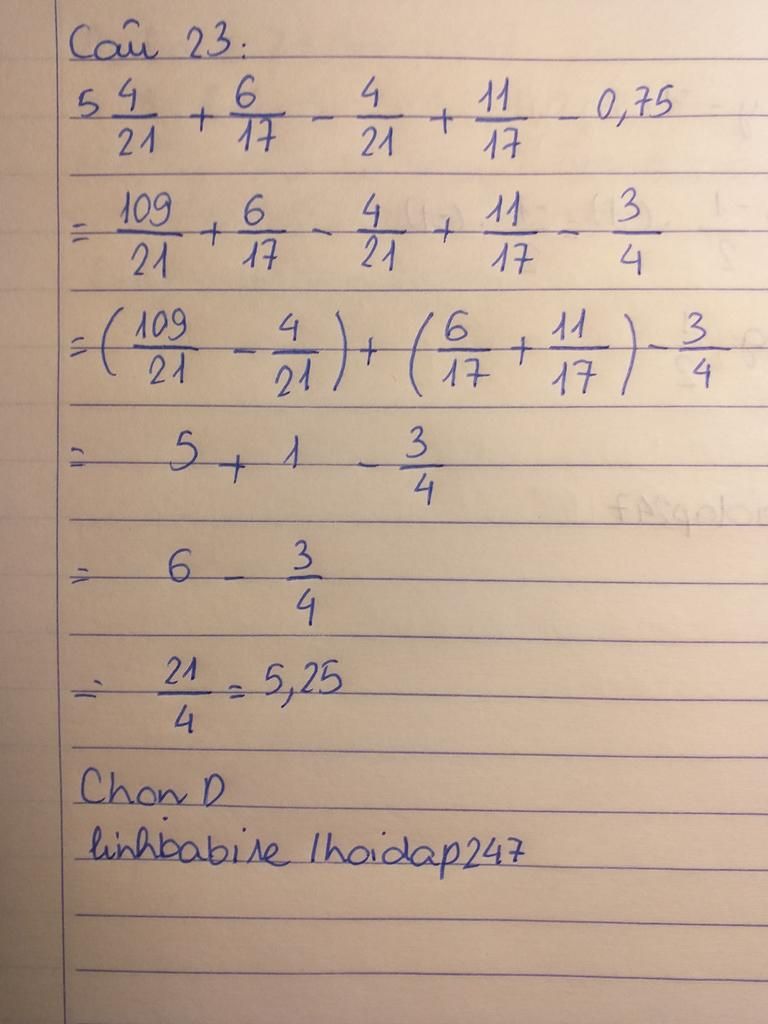 Câu 23:
5 4/21 + 6/17 - 4/21 + 11/17 - 0,75
= 109/21 + 6/17 - 4/21 + 11/17 - 3/4
= (109/21 - 4/21) + (6/17 + 11/17) - 3/4
= 5 + 1 - 3/4
= 6 - 3/4
= 21/4 = 5,25
Chon D
linhbabise /hoidap247